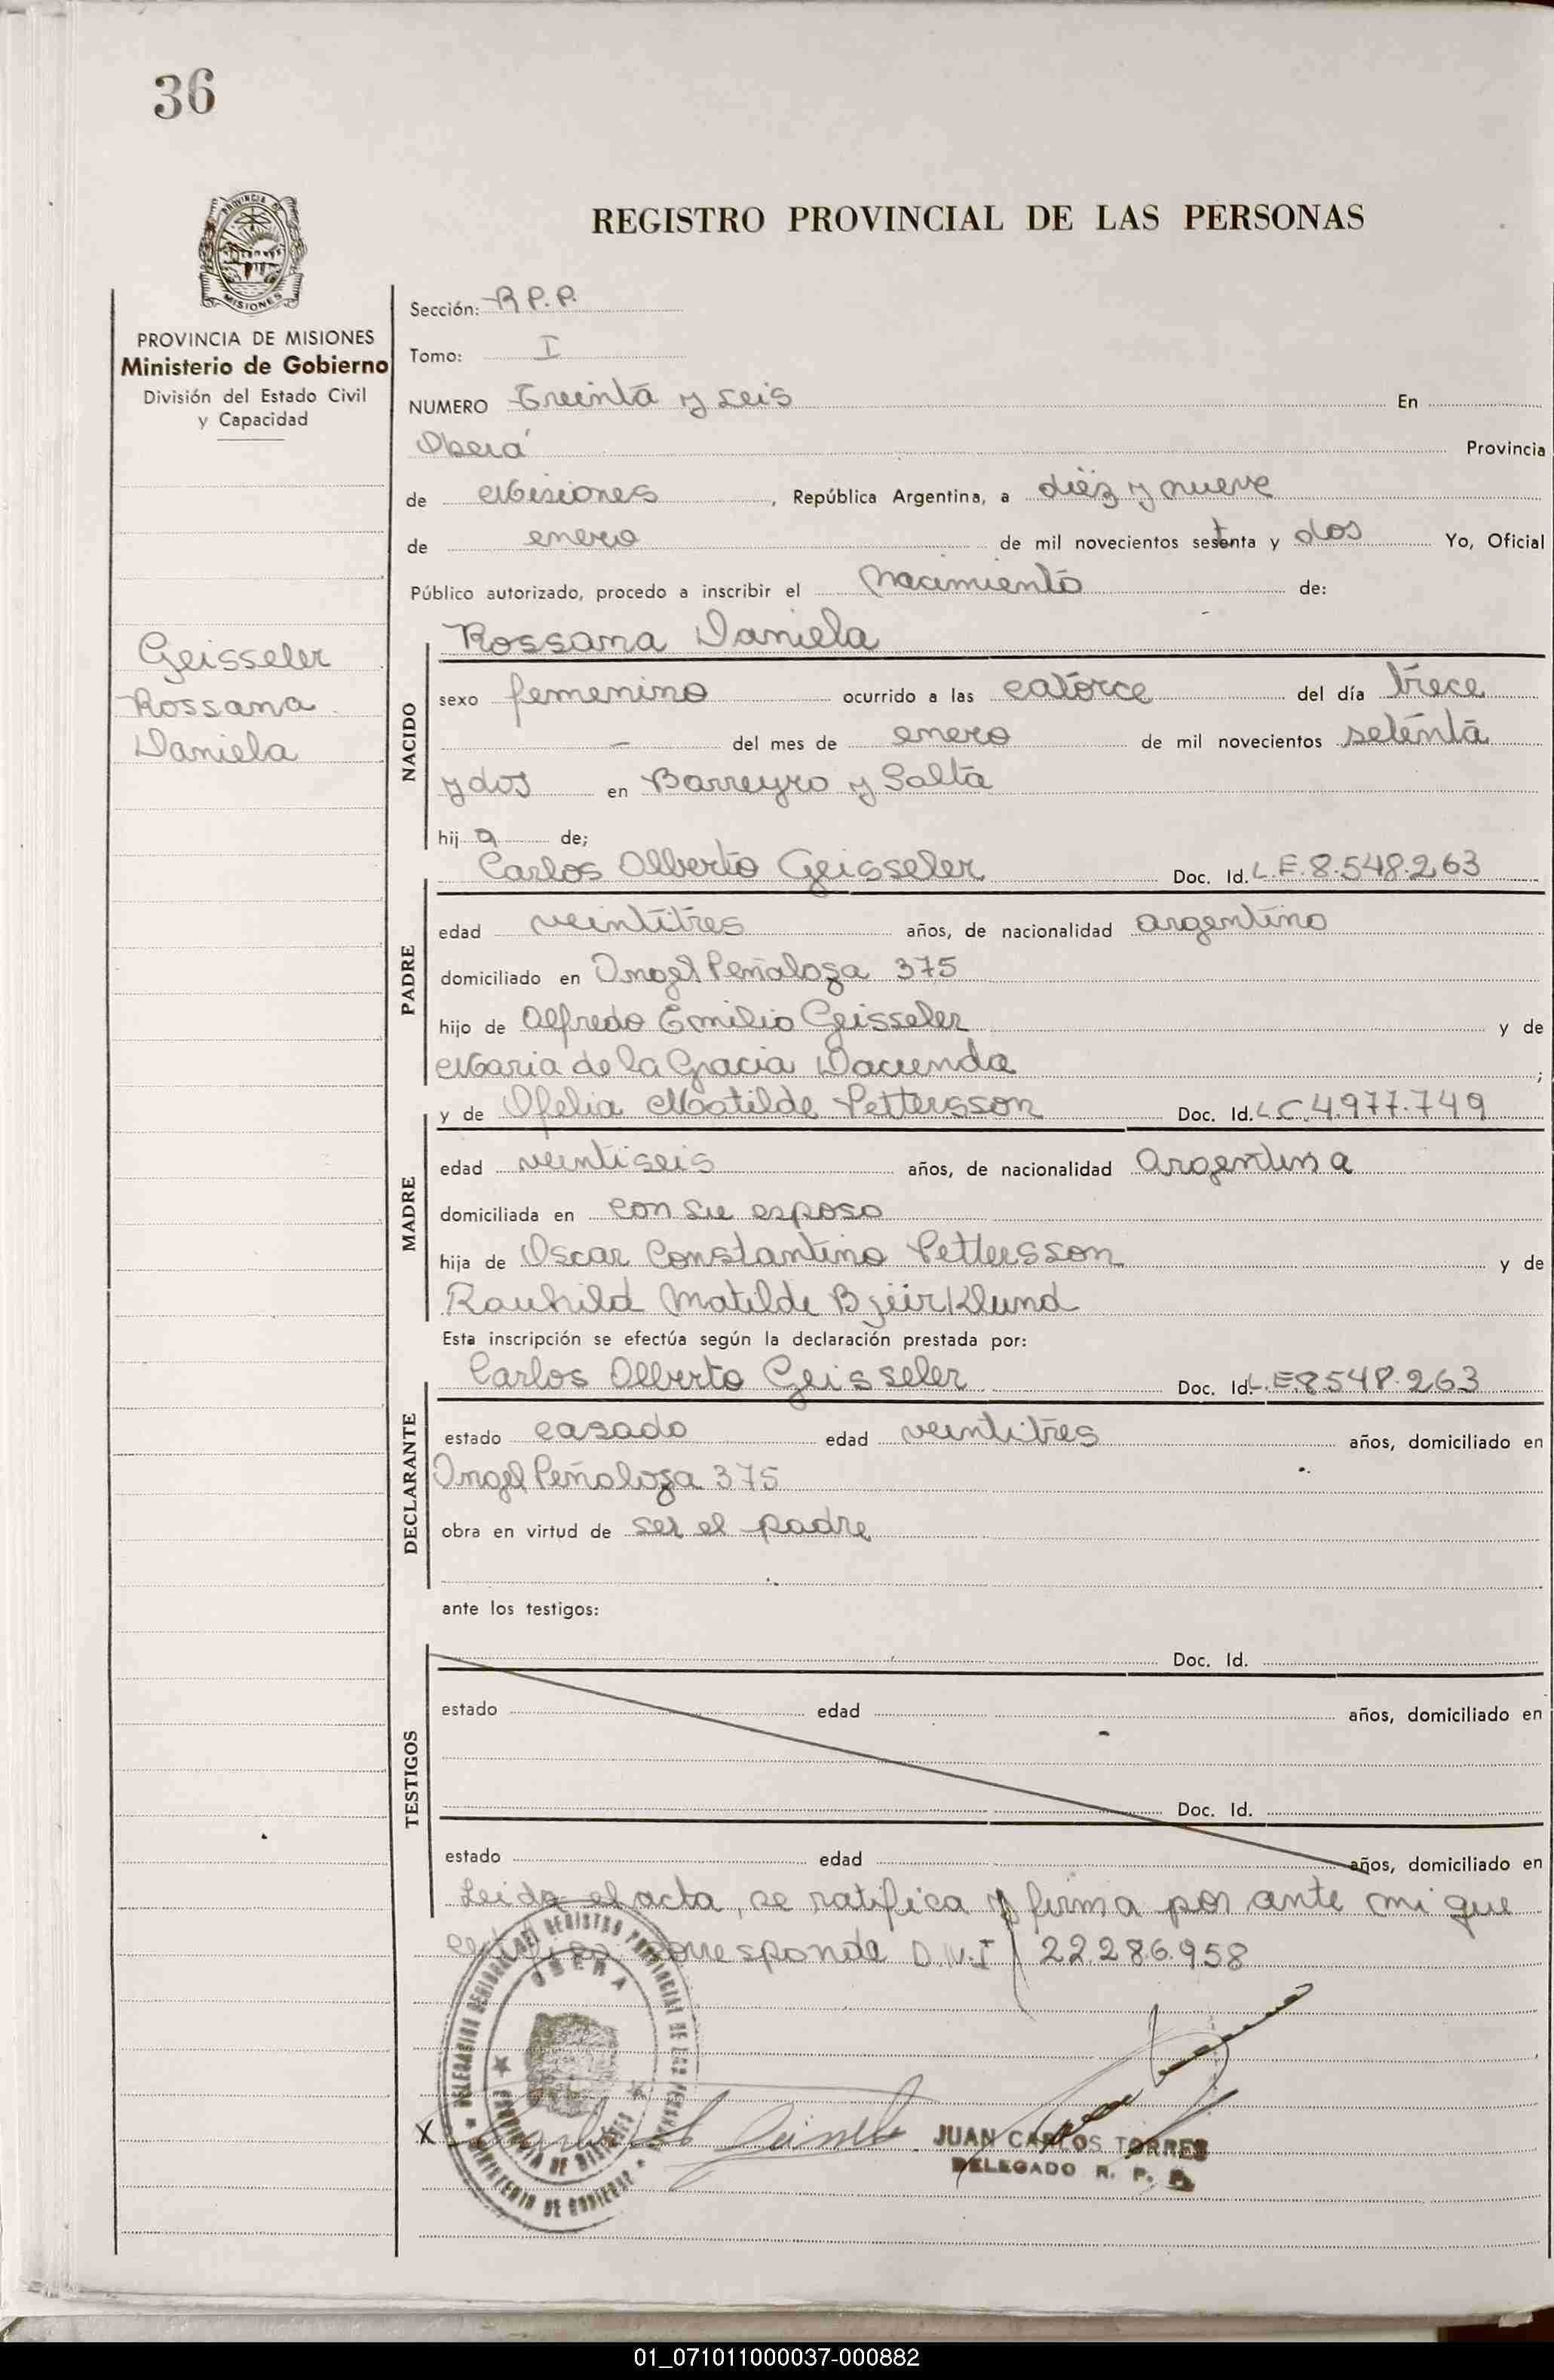 36
PROVINCIA DE
MISIONES
REGISTRO PROVINCIAL DE LAS PERSONAS
PROVINCIA DE MISIONES
Ministerio de Gobierno
División del Estado Civil
y Capacidad
Geisseler
Rossana
Daniela
Sección: R P.P.
Tomo: I
NUMERO Treinta y seis En
Oberá Provincia
de Misiones, República Argentina, a diéz y nueve
de enero de mil novecientos setenta y dos Yo, Oficial
Público autorizado, procedo a inscribir el Nacimiento de:
NACIDO
Rossana Daniela
sexo femenino ocurrido a las catorce del día trece
— del mes de enero de mil novecientos setenta
y dos en Barreyro y Salta
hij a de;
PADRE
Carlos Alberto Geisseler Doc. Id. L.E. 8.548.263
edad veintitres años, de nacionalidad argentino
domiciliado en Angel Peñaloza 375
hijo de Alfredo Emilio Geisseler y de
Maria de la Gracia Dacunda ;
MADRE
y de Ofelia Matilde Pettersson Doc. Id. L C. 4.977.749
edad veintiseis años, de nacionalidad Argentina
domiciliada en con su esposo
hija de Oscar Constantino Pettersson y de
Matilde
Esta inscripción se efectúa según la declaración prestada por:
DECLARANTE
Carlos Alberto Geisseler Doc. Id. L.E. 8.548.263
estado casado edad veintitres años, domiciliado en
Angel Peñaloza 375
obra en virtud de ser el padre
ante los testigos:
TESTIGOS
Doc. Id.
estado edad años, domiciliado en
Doc. Id.
estado edad años, domiciliado en
Leida el acta, se ratifica y firma por ante mi que
certifico corresponde D.N.I 22.286.958
DELEGACION REGIONAL DEL REGISTRO PROVINCIAL DE LAS PERSONAS
OBERA
PROVINCIA DE MISIONES
MINISTERIO DE GOBIERNO
X
JUAN CARLOS TORRES
DELEGADO R. P. P.
01_071011000037-000882